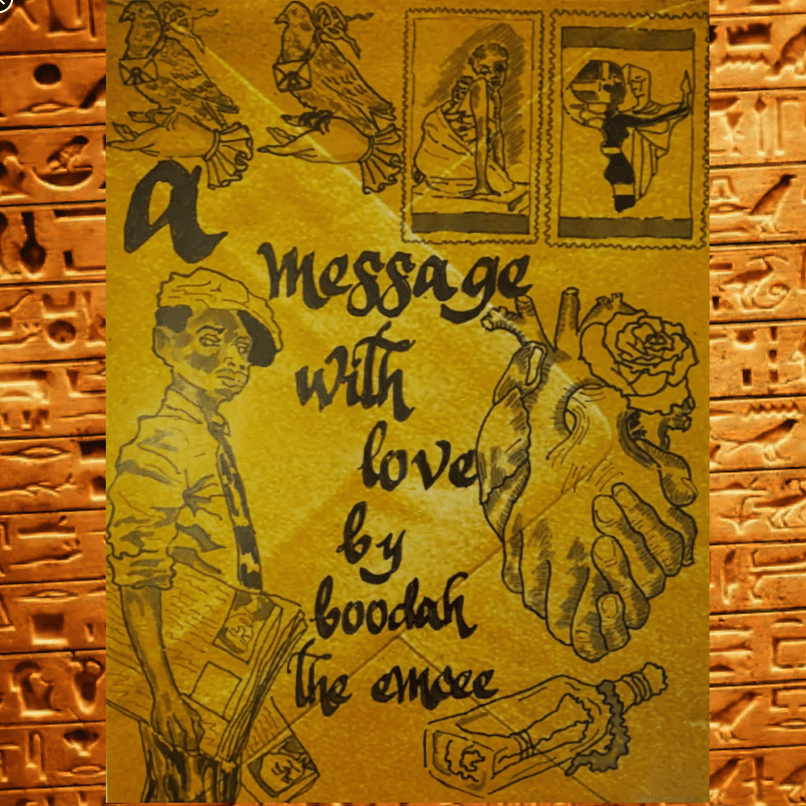 a
message
with
love
by
boodah
the emcee